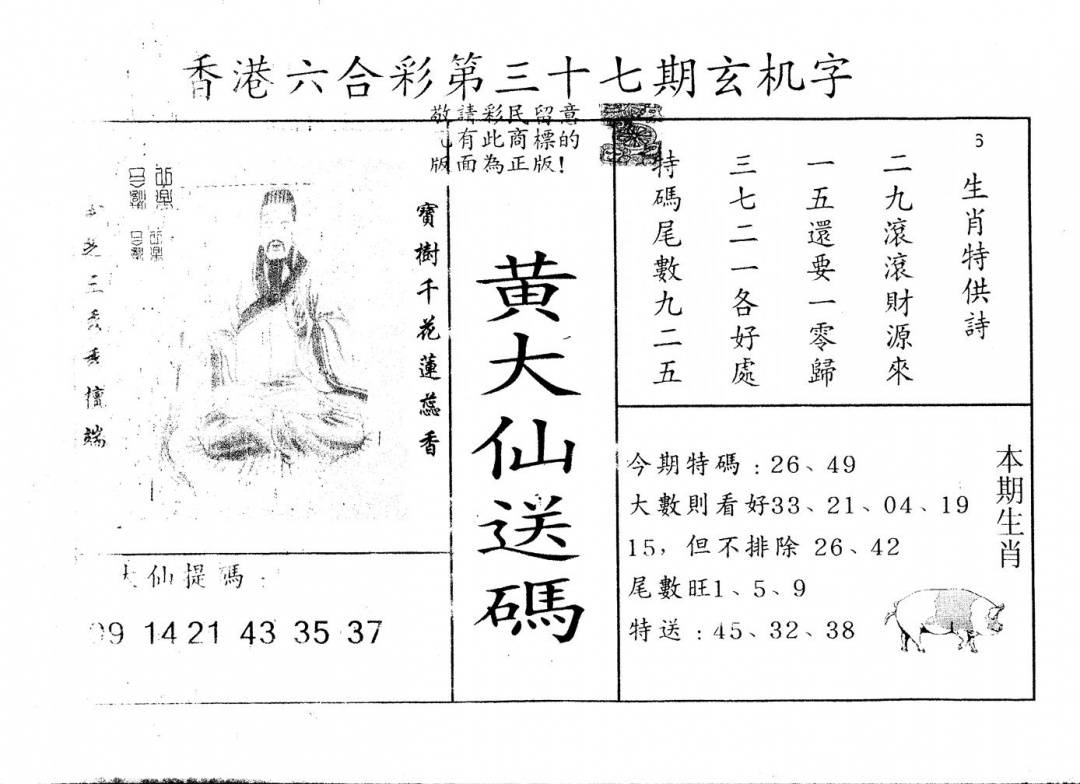 香港六合彩第三十七期玄机字
敬請彩民留意
有此商標的
版面為正版!
6
生肖特供詩
二九滾滾財源來
一五還要一零歸
三七二一各好處
特碼尾數九二五
黄大仙送碼
寶樹千花蓮蕊香
三
端
仙提碼:
09 14 21 43 35 37
本期生肖
今期特碼:26、49
大數則看好33、21、04、19
15,但不排除 26、42
尾數旺1、5、9
特送:45、32、38